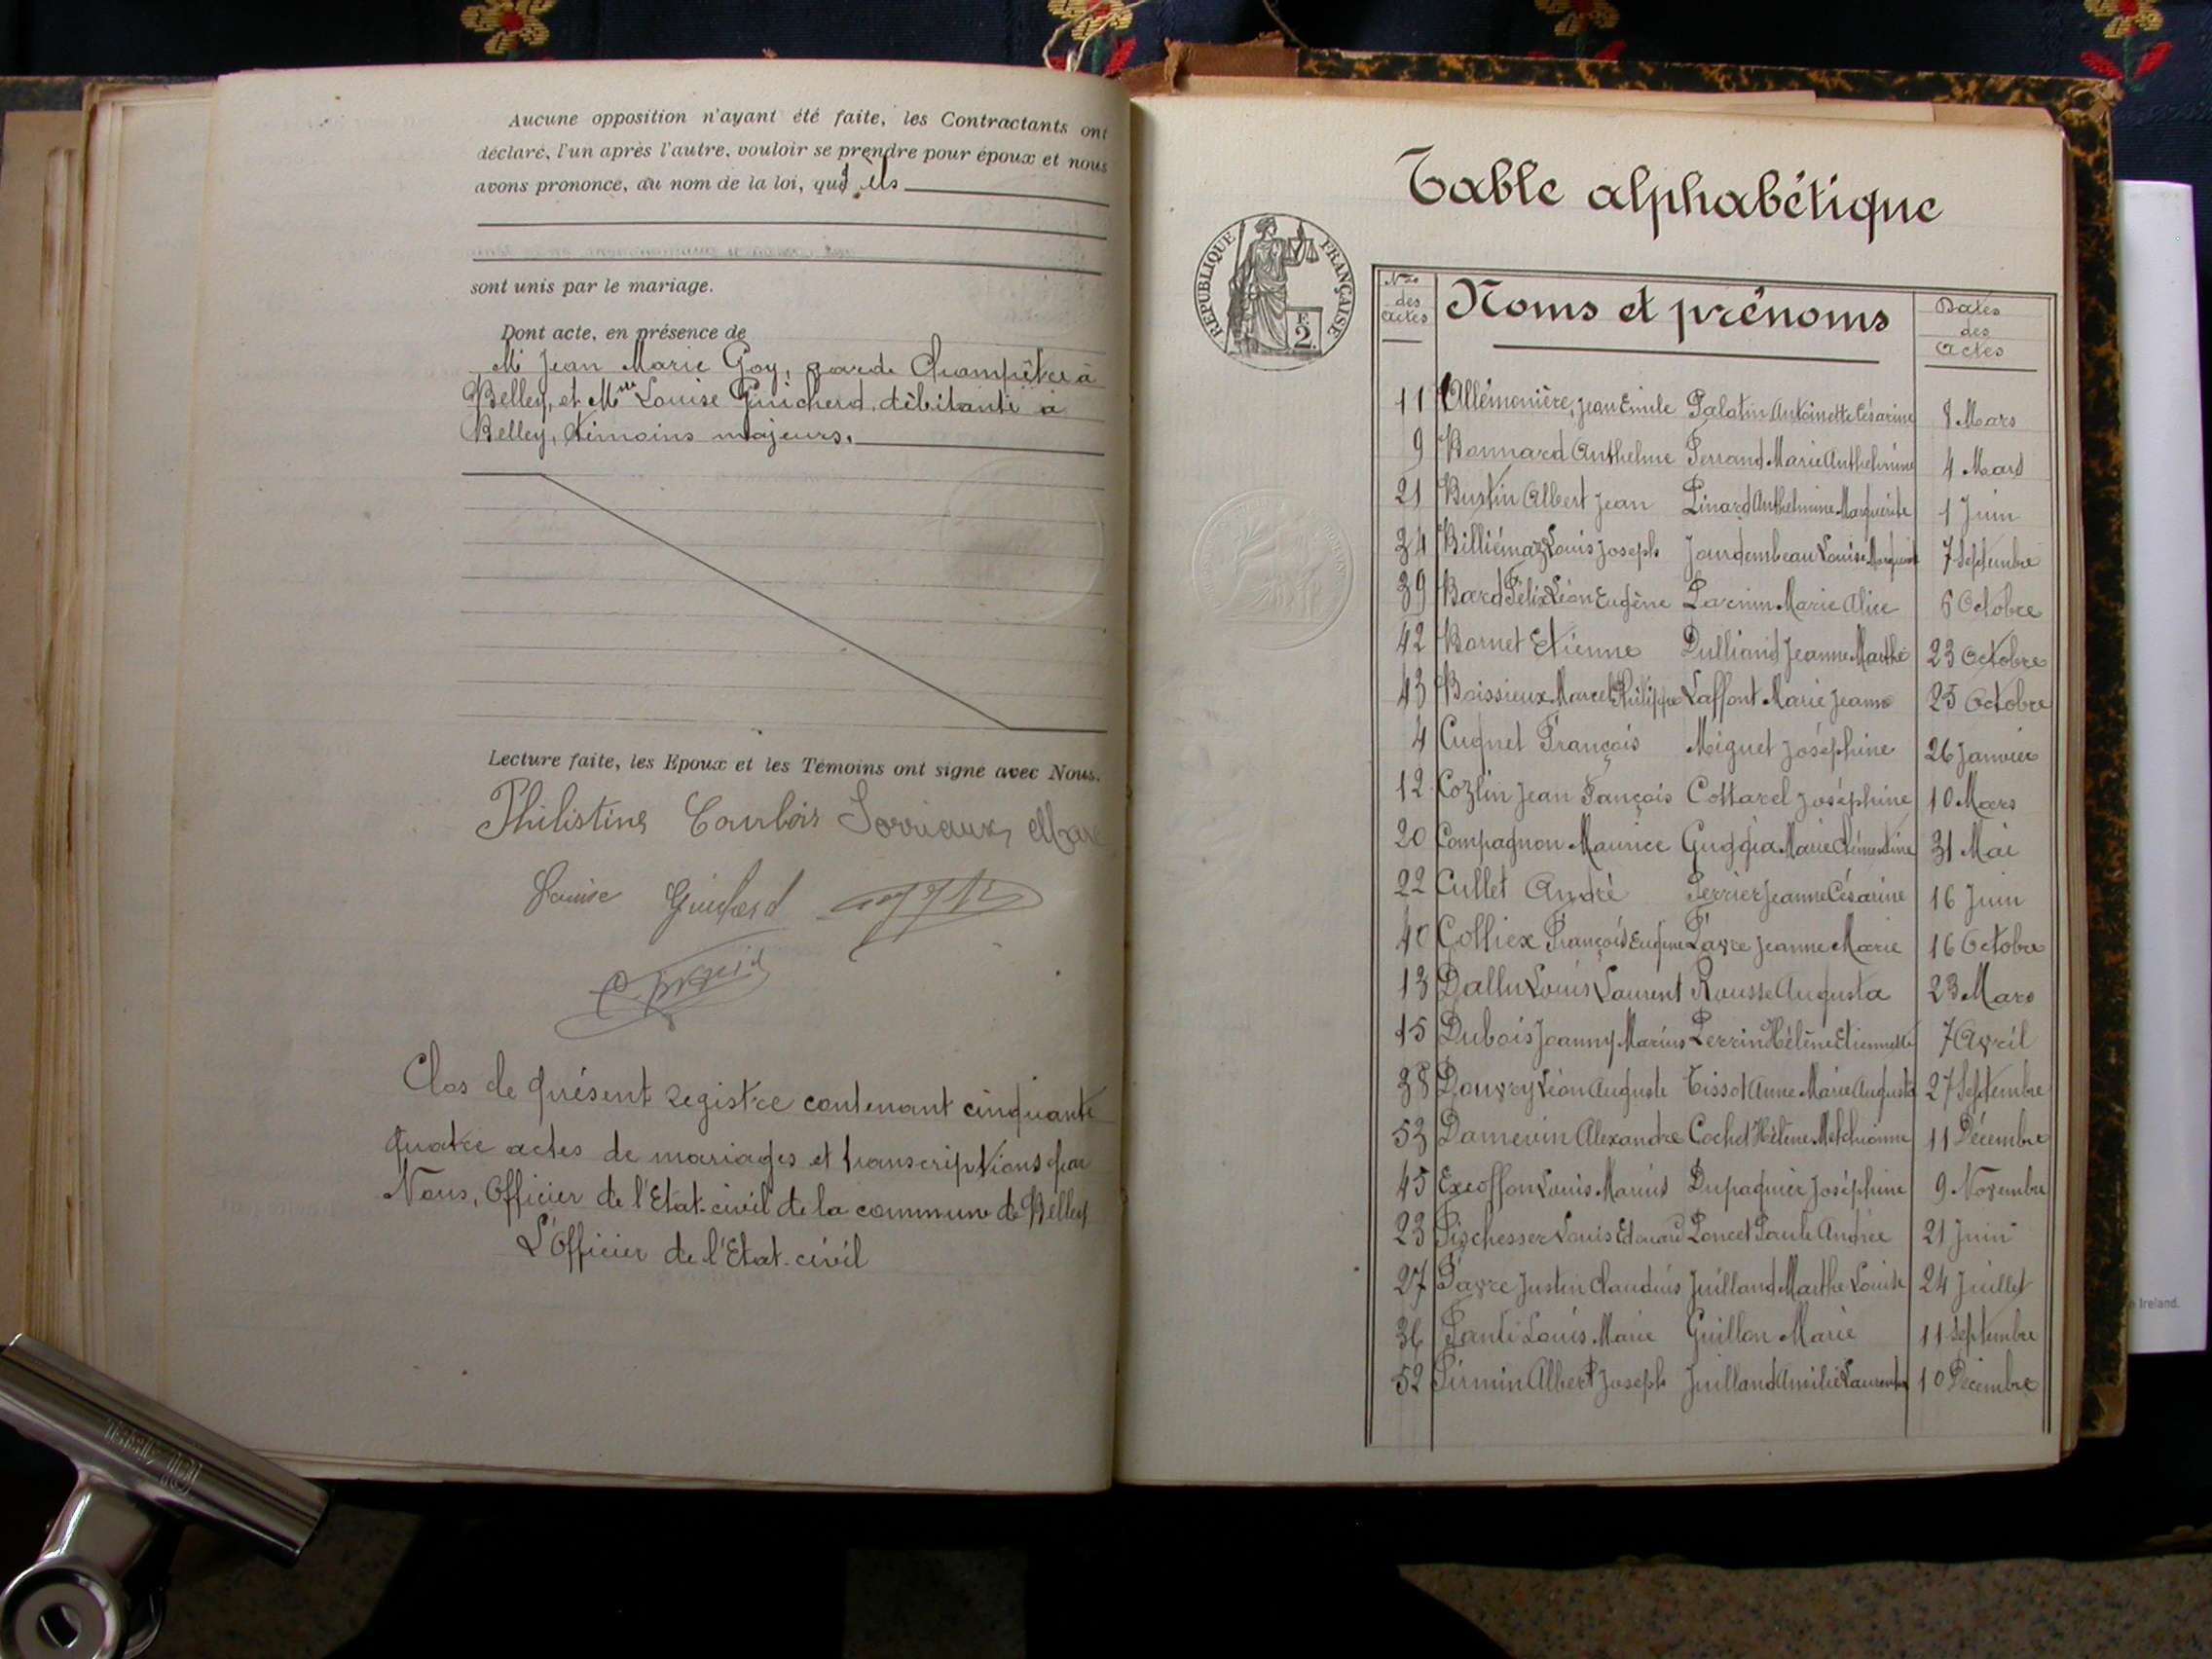 Aucune opposition n'ayant été faite, les Contractants ont
déclaré, l'un après l'autre, vouloir se prendre pour époux et nous
avons prononcé, au nom de la loi, qu'ils
sont unis par le mariage.
Dont acte, en présence de
Mr Jean Marie Goy, garde Champêtre à
Belley, et Mme Louise Guicherd, débitante à
Belley, témoins majeurs.
Lecture faite, les Epoux et les Témoins ont signé avec Nous.
Philistine Courbois Sorriaux
Louise Guicherd
Clos le présent registre contenant cinquante
quatre actes de mariages et transcriptions par
Nous, Officier de l'Etat-civil de la commune de Belley
L'Officier de l'Etat-civil
Table alphabétique
REPUBLIQUE FRANÇAISE
F.
2.
Nos des actes Noms et prénoms Dates des Actes
11 Allémonière, Jean Emile Palatin Antoinette Césarine 8 Mars
9 Bonnard Anthelme Ferrand Marie Anthelmine 4 Mars
21 Bustin Albert Jean Pinard Anthelmine Marguerite 1 Juin
34 Billiémaz Louis Joseph Jourdembeau Louise 7 Septembre
39 Bard Félix Léon Eugène Marie Alice 6 Octobre
42 Bornet Etienne Dulliand Jeanne Marthe 23 Octobre
43 Boissieux Marcel Philippe Laffont Marie Jeanne 25 Octobre
4 Cugnet François Miguet Joséphine 26 Janvier
12 Cozlin Jean François Cottarel Joséphine 10 Mars
20 Compagnon Maurice Guggia Marie Clémentine 31 Mai
22 Cullet André Perrier Jeanne Césarine 16 Juin
40 Colliex François Eugène Favre Jeanne Marie 16 Octobre
13 Dallu Louis Laurent Rousse Augusta 23 Mars
15 Dubois Joanny Marius Perrin Hélène Etiennette 7 Avril
38 Douvry Léon Auguste Tissot Anne Marie Augusta 27 Septembre
53 Damevin Alexandre Cochet Hélène Melchionne 11 Décembre
45 Excoffon Louis Marius Dupaquier Joséphine 9 Novembre
23 Fischesser Louis Edouard Poncet Paule Andrée 21 Juin
27 Favre Justin Claudius Juilland Marthe Louise 24 Juillet
36 Fanti Louis Marie Guillon Marie 11 Septembre
52 Firmin Albert Joseph Juilland Amélie Laurentine 10 Décembre
Ireland.